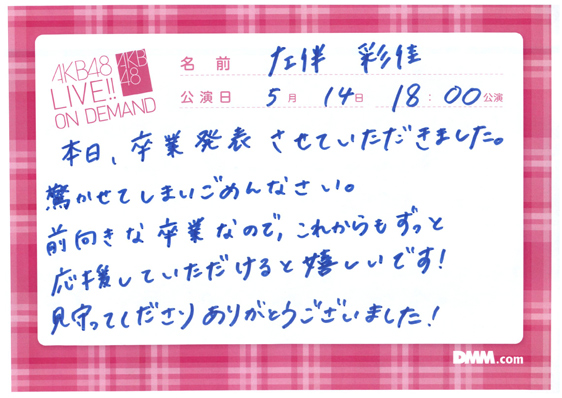 AKB48
LIVE!!
ON DEMAND
AKB
48
名前 左伴 彩佳
公演日 5月 14日 18:00公演
本日、卒業発表させていただきました。
驚かせてしまいごめんなさい。
前向きな卒業なので、これからもずっと
応援していただけると嬉しいです!
見守ってくださりありがとうございました!
DMM.com